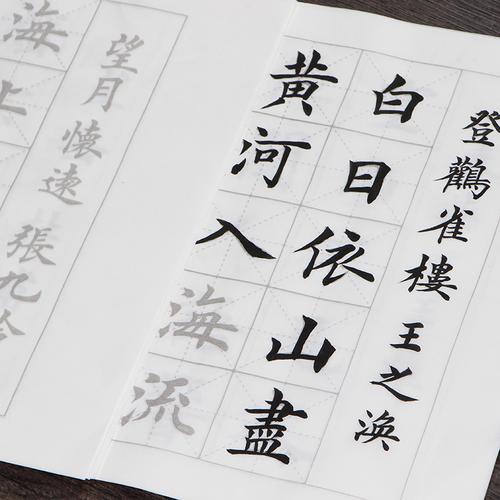 登鸛雀樓 王之渙
白日依山盡
黃河入海流
望月懷遠 張九令
海上